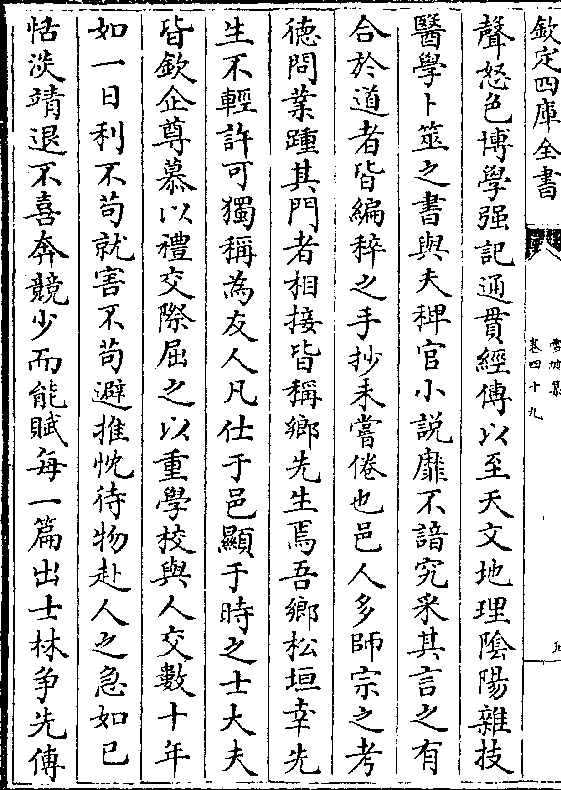 欽定四庫全書
雪坡集
卷四十九
聲怒色博學强記通貫經傳以至天文地理隂陽雜技
醫學卜筮之書與夫稗官小説靡不諳究采其言之有
合於道者皆編稡之手抄未嘗倦也邑人多師宗之考
徳問業踵其門者相接皆稱鄉先生焉吾鄉松垣幸先
生不輕許可獨稱為友人凡仕于邑顯于時之士大夫
皆欽企尊慕以禮交際屈之以重學校與人交數十年
如一日利不苟就害不苟避推忱待物赴人之急如已
恬淡靖退不喜奔競少而能賦每一篇出士林争先傳